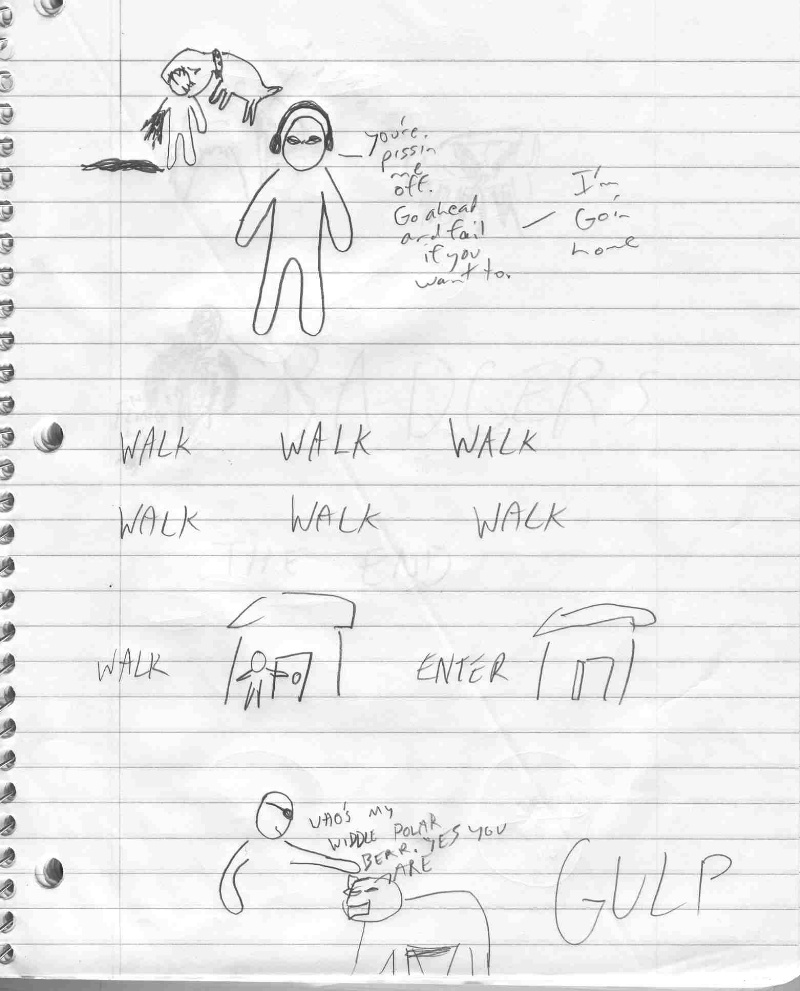 You're.
pissin
me
off.
Go ahead
and fail
if you
want to.
I'm
Goin
home
BADGERS
WALK WALK WALK
WALK WALK WALK
THE END
WALK ENTER
WHO'S MY
WIDDLE POLAR
BERR. YES YOU
ARE
GULP